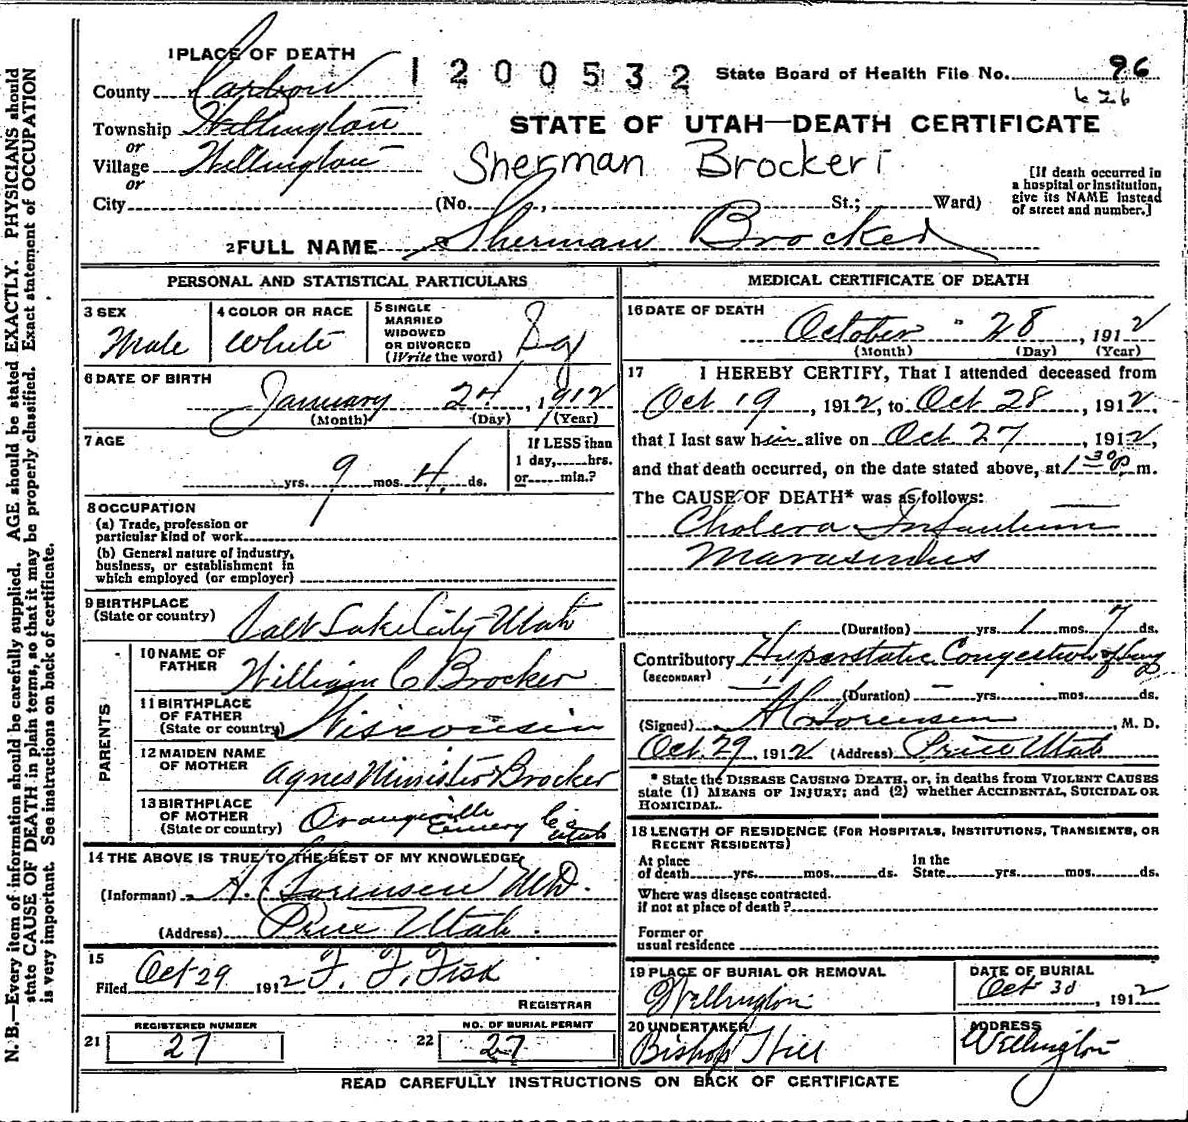 1 PLACE OF DEATH
1200532
State Board of Health File No. 96
626
County Carbon
Township Wellington
or
Village Wellington
or
City (No. , St.; Ward)
STATE OF UTAH—DEATH CERTIFICATE
Sherman Brocker
[If death occurred in
a hospital or institution,
give its NAME instead
of street and number.]
2 FULL NAME Sherman Brocker
PERSONAL AND STATISTICAL PARTICULARS
3 SEX
Male
4 COLOR OR RACE
White
5 SINGLE
MARRIED
WIDOWED
OR DIVORCED
(Write the word)
Sg
6 DATE OF BIRTH
January 24, 1912
(Month) (Day) (Year)
7 AGE
yrs. 9 mos. 4 ds.
If LESS than
1 day, hrs.
or min.?
8 OCCUPATION
(a) Trade, profession or
particular kind of work
(b) General nature of industry,
business, or establishment in
which employed (or employer)
9 BIRTHPLACE
(State or country)
Salt Lake City Utah
PARENTS
10 NAME OF
FATHER
William C Brocker
11 BIRTHPLACE
OF FATHER
(State or country)
Wisconsin
12 MAIDEN NAME
OF MOTHER
Agnes Minister Brocker
13 BIRTHPLACE
OF MOTHER
(State or country)
Orangeville
Emery Co
Utah
14 THE ABOVE IS TRUE TO THE BEST OF MY KNOWLEDGE
(Informant) A. C. Sorensen MD.
(Address) Price Utah.
15
Filed Oct 29 1912 F. F. Fisk
REGISTRAR
21 REGISTERED NUMBER
27
22 NO. OF BURIAL PERMIT
27
MEDICAL CERTIFICATE OF DEATH
16 DATE OF DEATH
October 28, 1912
(Month) (Day) (Year)
17 I HEREBY CERTIFY, That I attended deceased from
Oct 19, 1912, to Oct 28, 1912,
that I last saw him alive on Oct 27, 1912,
and that death occurred, on the date stated above, at 1 30 P. m.
The CAUSE OF DEATH* was as follows:
Cholera Infantum
Marasmus
(Duration) yrs. 1 mos. 7 ds.
Contributory Hyperstatic Congestion of lung
(SECONDARY)
(Duration) yrs. mos. ds.
(Signed) A C Sorensen M. D.
Oct. 29, 1912 (Address) Price Utah
* State the DISEASE CAUSING DEATH, or, in deaths from VIOLENT CAUSES
state (1) MEANS OF INJURY; and (2) whether ACCIDENTAL, SUICIDAL OR
HOMICIDAL.
18 LENGTH OF RESIDENCE (FOR HOSPITALS, INSTITUTIONS, TRANSIENTS, OR
RECENT RESIDENTS)
At place
of death yrs. mos. ds.
In the
State yrs. mos. ds.
Where was disease contracted.
if not at place of death?
Former or
usual residence
19 PLACE OF BURIAL OR REMOVAL
Wellington
DATE OF BURIAL
Oct 30, 1912
20 UNDERTAKER
Bishop Hill
ADDRESS
Wellington
READ CAREFULLY INSTRUCTIONS ON BACK OF CERTIFICATE
N. B.—Every item of information should be carefully supplied. AGE should be stated EXACTLY. PHYSICIANS should
state CAUSE OF DEATH in plain terms, so that it may be properly classified. Exact statement of OCCUPATION
is very important. See instructions on back of certificate.